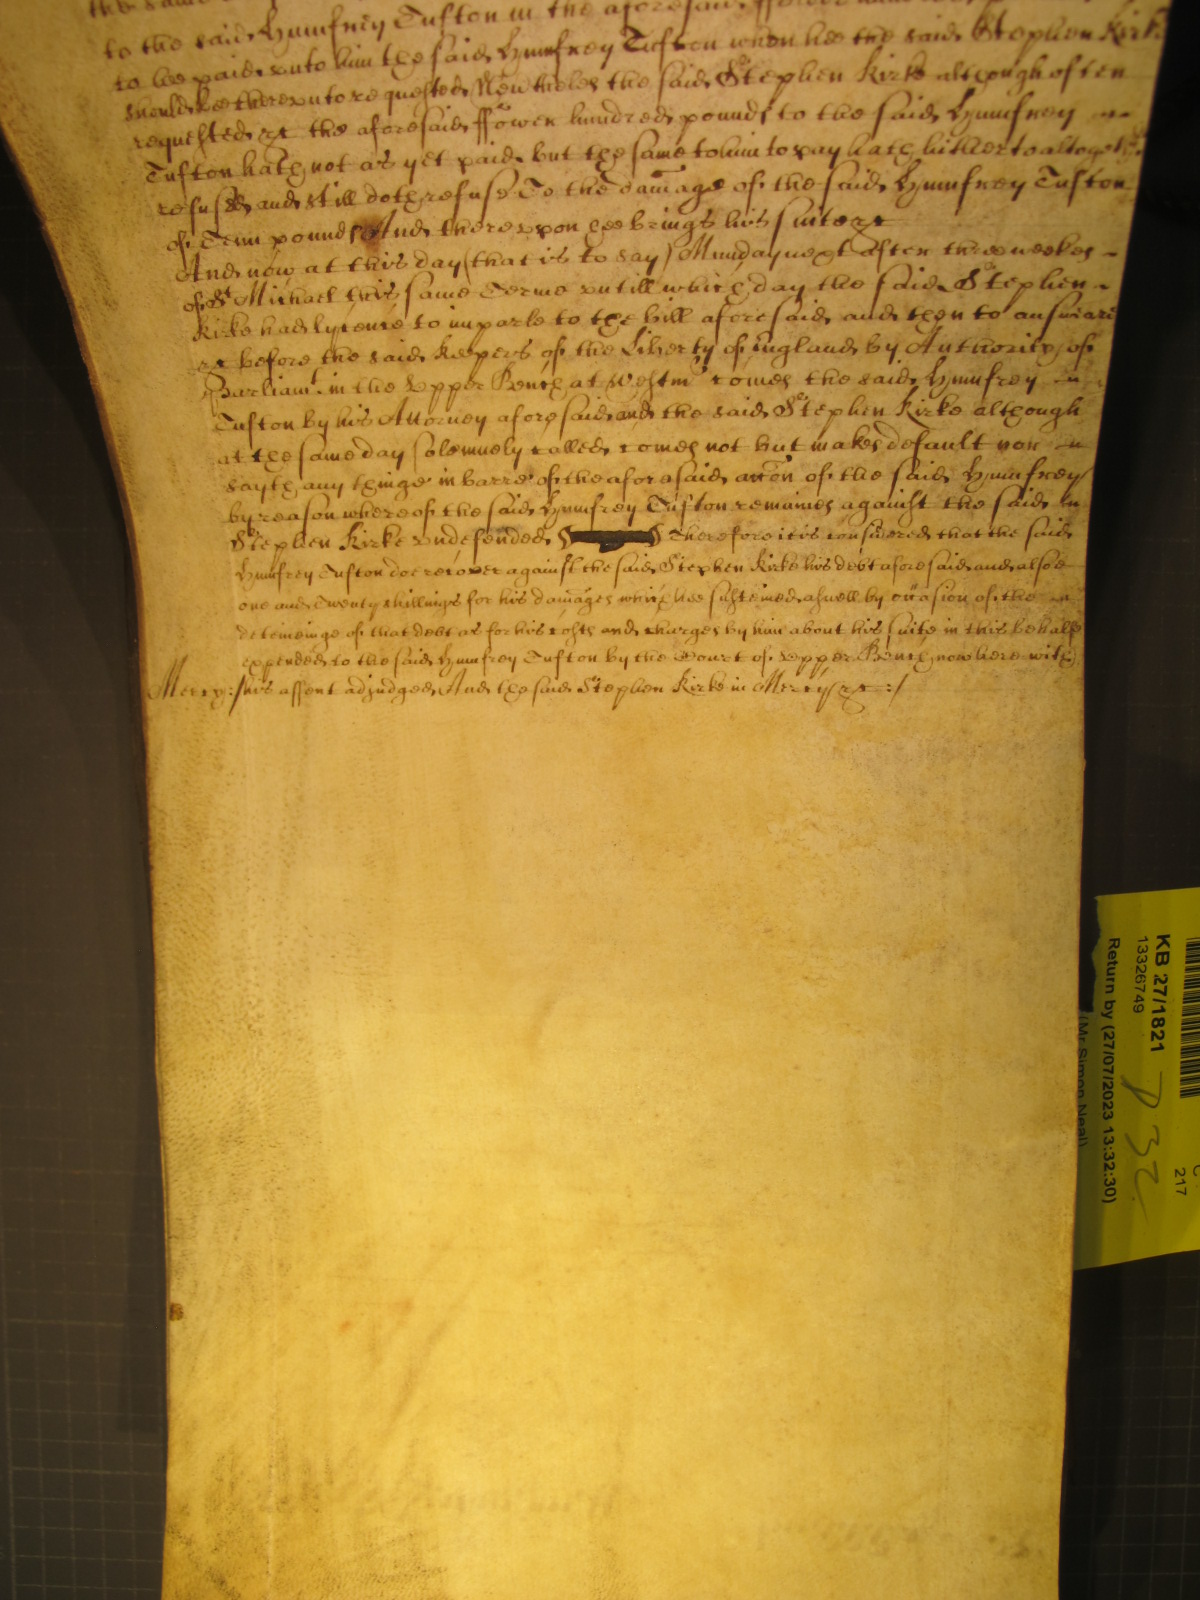 the same
to the said Humfrey Tufton in the aforesaid ffower hundred
to bee paid vnto him the said Humfrey Tufton when hee the said Stephen Kirke
should bee therevnto requested Neu'theles the said Stephen Kirke although often
requested &c the aforesaid ffower hundred pounds to the said Humfrey
Tufton hath not as yet paid but the same to him to pay hath hitherto altogether
refused and still doth refuse To the damage of the said Humfrey Tufton
of Tenn pounds And therevpon hee brings his suite &c
And now at this day (that is to say) Munday next after three weekes
of St Michael this same Terme vntill which day the said Stephen
Kirke had lycence to imparle to the bill aforesaid and then to answeare
&c before the said Keepers of the Liberty of England by Authority of
Parliamt. in the Vpper Bench at Westm' comes the said Humfrey
Tufton by his Attorney aforesaid and the said Stephen Kirke although
at the same day solemnely called comes not but makes default nor
sayth any thinge in barre of the aforesaid accon of the said Humfrey
by reason whereof the said Humfrey Tufton remaines against the said
Stephen Kirke vndefended Therefore it is considered that the said
Humfrey Tufton doe recover against the said Stephen Kirke his debt aforesaid and alsoe
one and Twenty shillings for his damages which hee susteined aswell by occasion of the
deteineinge of that debt as for his costs and charges by him about his suite in this behalfe
expended to the said Humfrey Tufton by the Court of Vpper Bench now here with
Mercy :/ his assent adjudged And the said Stephen Kirke in Mercy &c :/
KB 27/1821
13326749
Return by (27/07/2023 13:32:30)
(Mr Simon Neal)
217